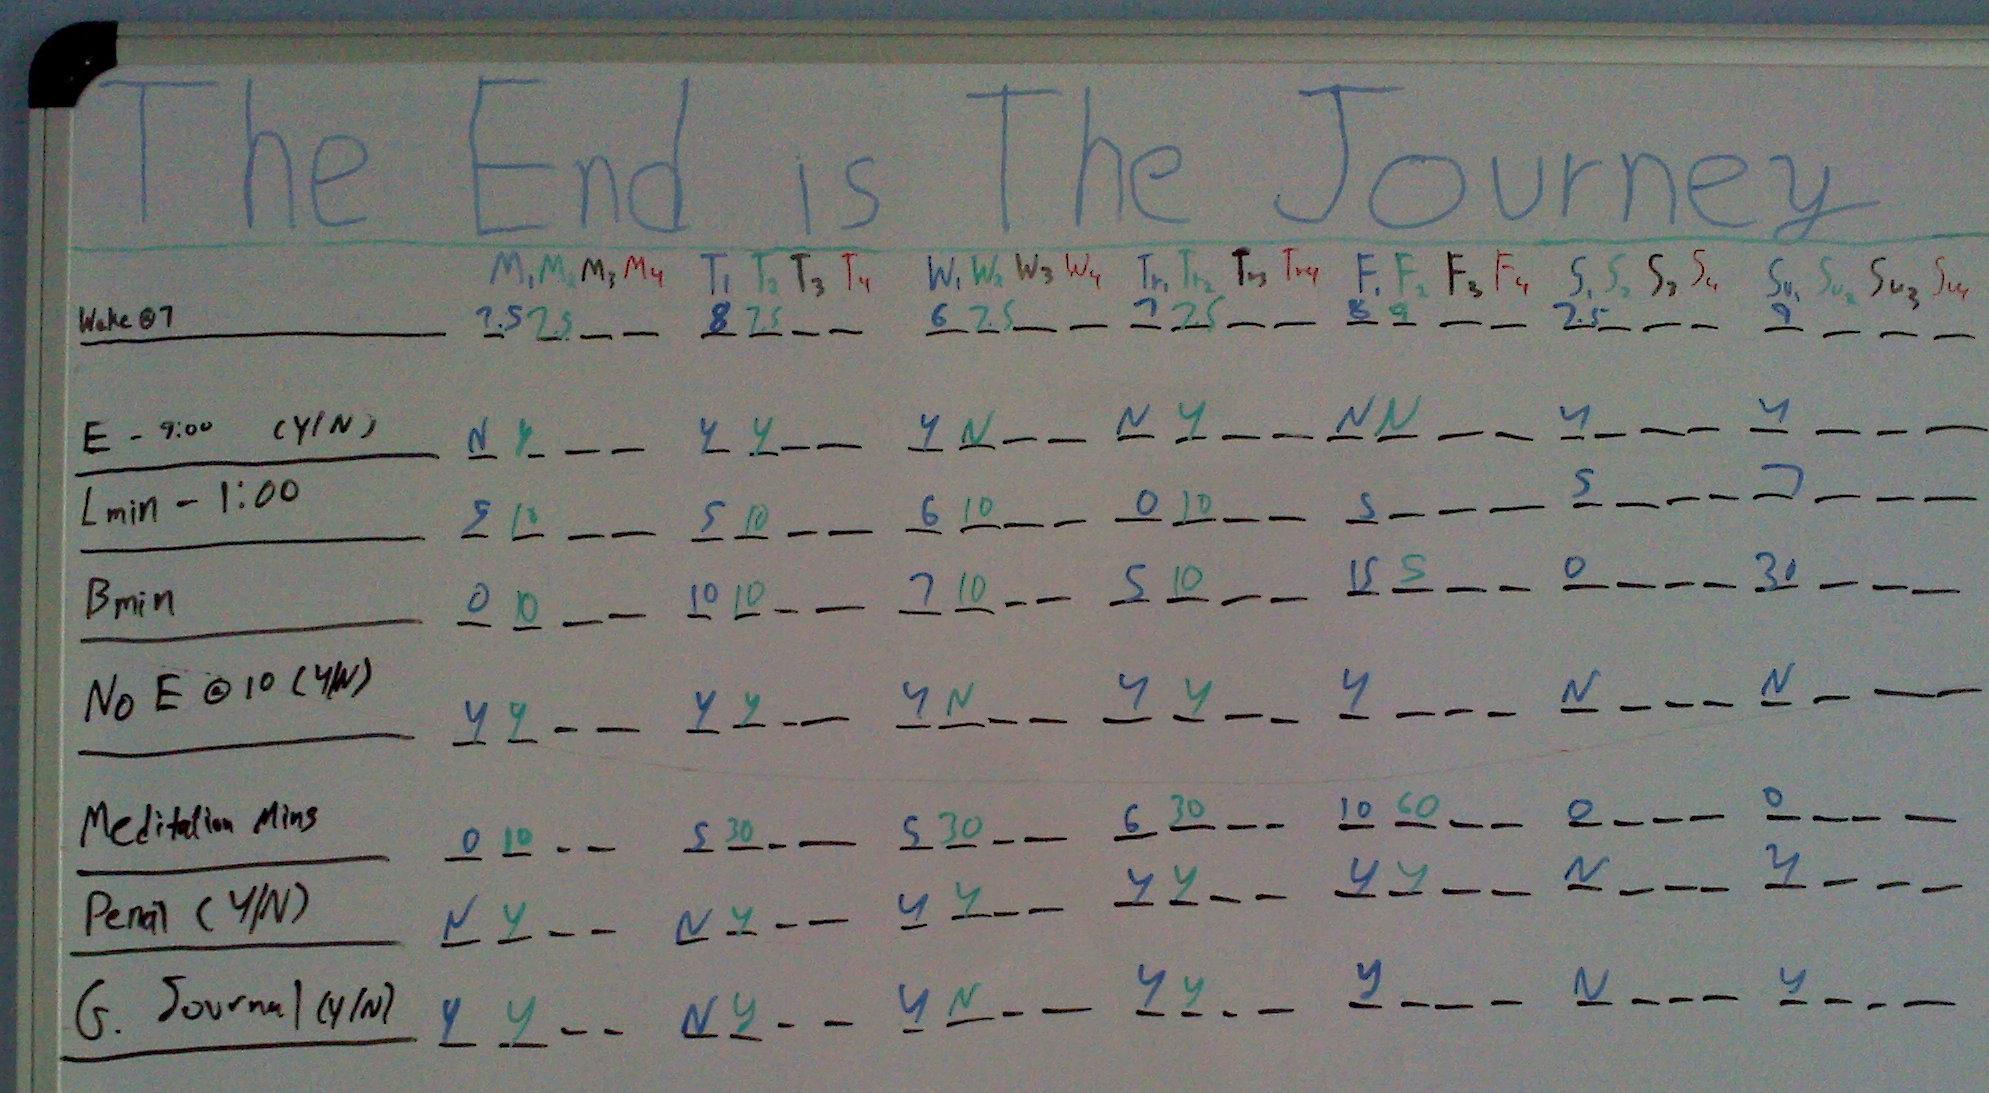 The End is The Journey
M1 M2 M3 M4 T1 T2 T3 T4 W1 W2 W3 W4 Tr1 Tr2 Tr3 Tr4 F1 F2 F3 F4 S1 S2 S3 S4 Su1 Su2 Su3 Su4
Wake @7 7.5 7.5 8 7.5 6 7.5 7 7.5 8 9 7.5 9
E - 9:00 (Y/N) N Y Y Y Y N N Y N N Y Y
Lmin - 1:00 5 10 5 10 6 10 0 10 5 5 7
Bmin 0 10 10 10 7 10 5 10 15 5 0 30
No E @ 10 (Y/N) Y Y Y Y Y N Y Y Y N N
Meditation Mins 0 10 5 30 5 30 6 30 10 60 0 0
(Y/N) N Y N Y Y Y Y Y Y Y N Y
G. Journal (Y/N) Y Y N Y Y N Y Y Y N Y